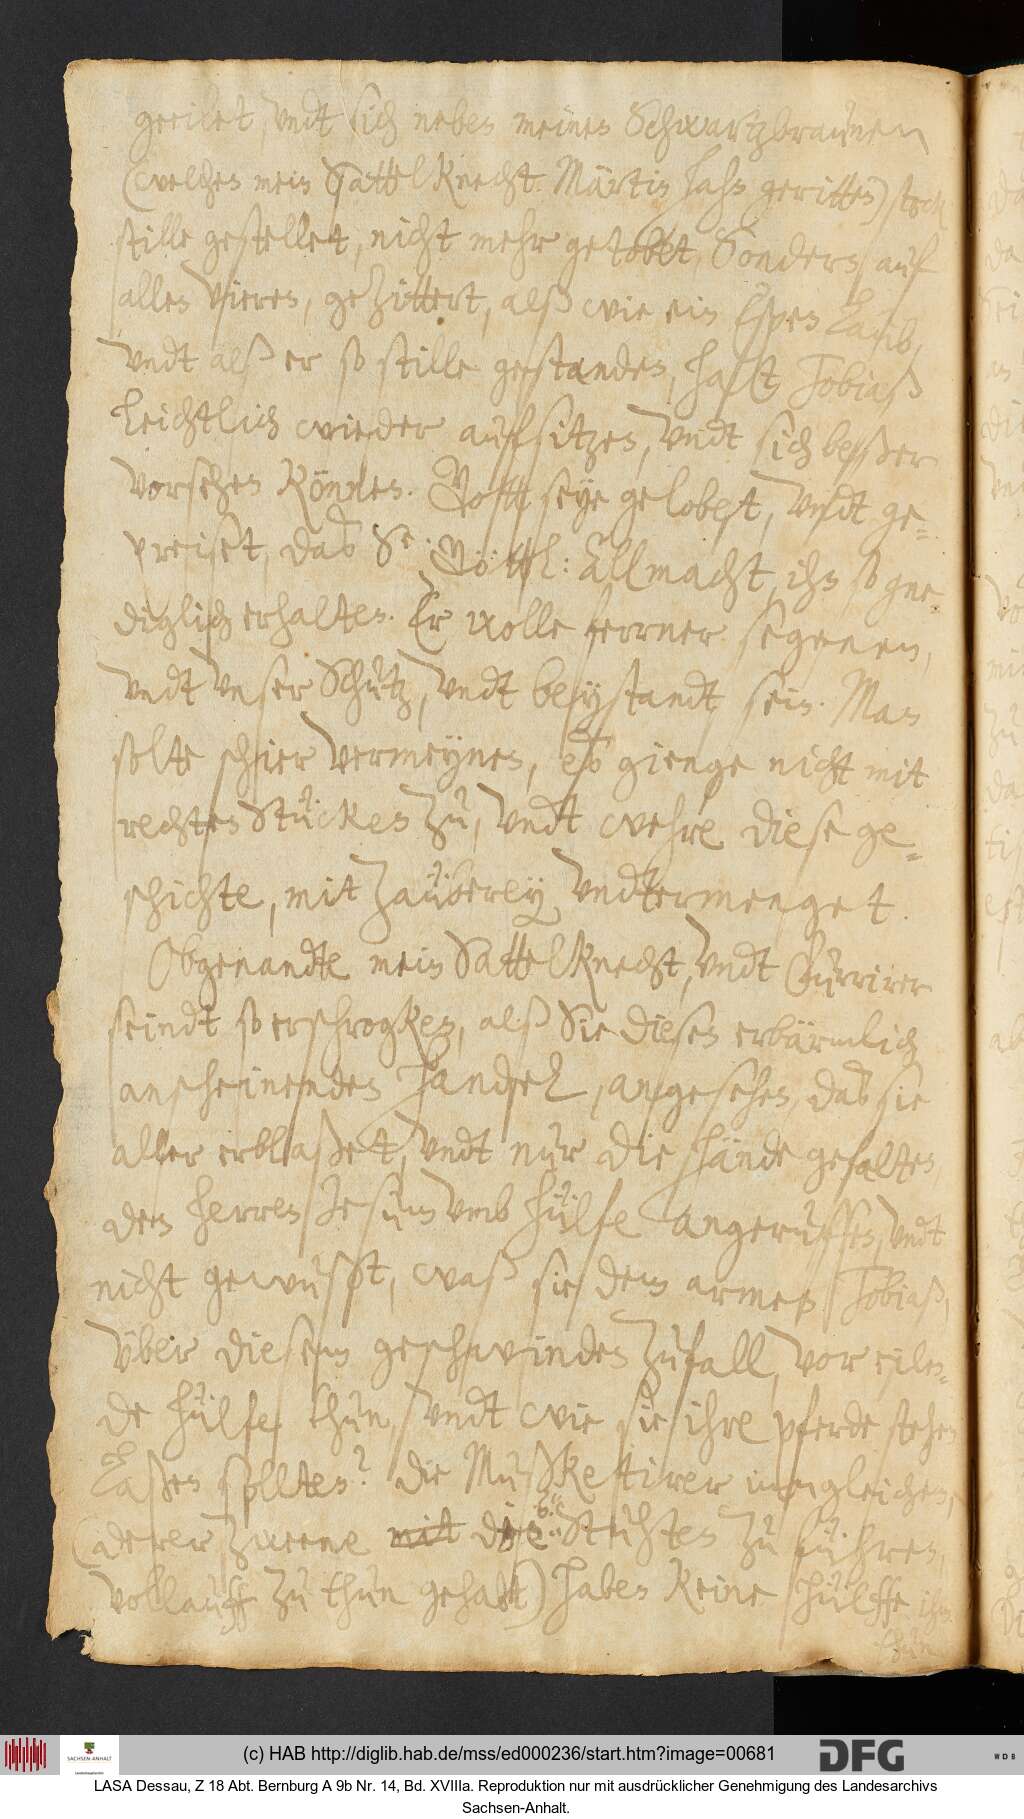 geeilet, undt sich neben meinen Schwartzbraunen
(welchen mein Sattelknecht Märtin Jahn geritten) stock
stille gestellet, nicht mehr getobt, Sondern auf
allen Vieren, gezittert, alß wie ein Espen Laub,
undt alß er so stille gestanden, hatt Tobiaß
Leichtlich wieder aufsitzen, undt sich beßer
vorsehen Können. Gott seye gelobet, undt ge-
preiset, das Se: Göttl: Allmacht, ihn so gne
diglich erhalten. Er wolle ferrner segenen,
undt unser Schutz, undt beystandt sein. Man
solte schier vermeynen, es gienge nicht mit
rechten Stücken zu, undt wehre diese ge-
schichte, mit Zauberey undtermenget.
Obgenandte mein Sattelknecht, undt Currirer
seindt so erschrogken, alß Sie diesen erbärmlich
anscheinenden Handel, angesehen, das sie
aller erblaßet, undt nur die hände gefalten,
den herren Jesum umb hülfe angeruffen, undt
nicht gewußt, waß sie dem armen Tobiaß,
über diesem geschwinden Zufall, vor eilen-
de hülfe thun, undt wie sie ihre pferde stehen
Laßen sollten? die Mußketirer imgleichen,
(derer zweene mit die 2 Stuhten zu führen,
vollauff zu thun gehabt) haben keine hülffe ihm